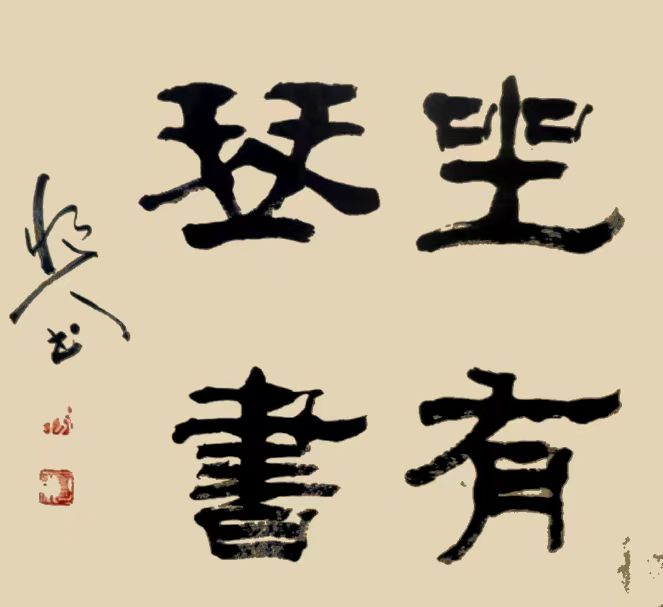 坐有
琴書